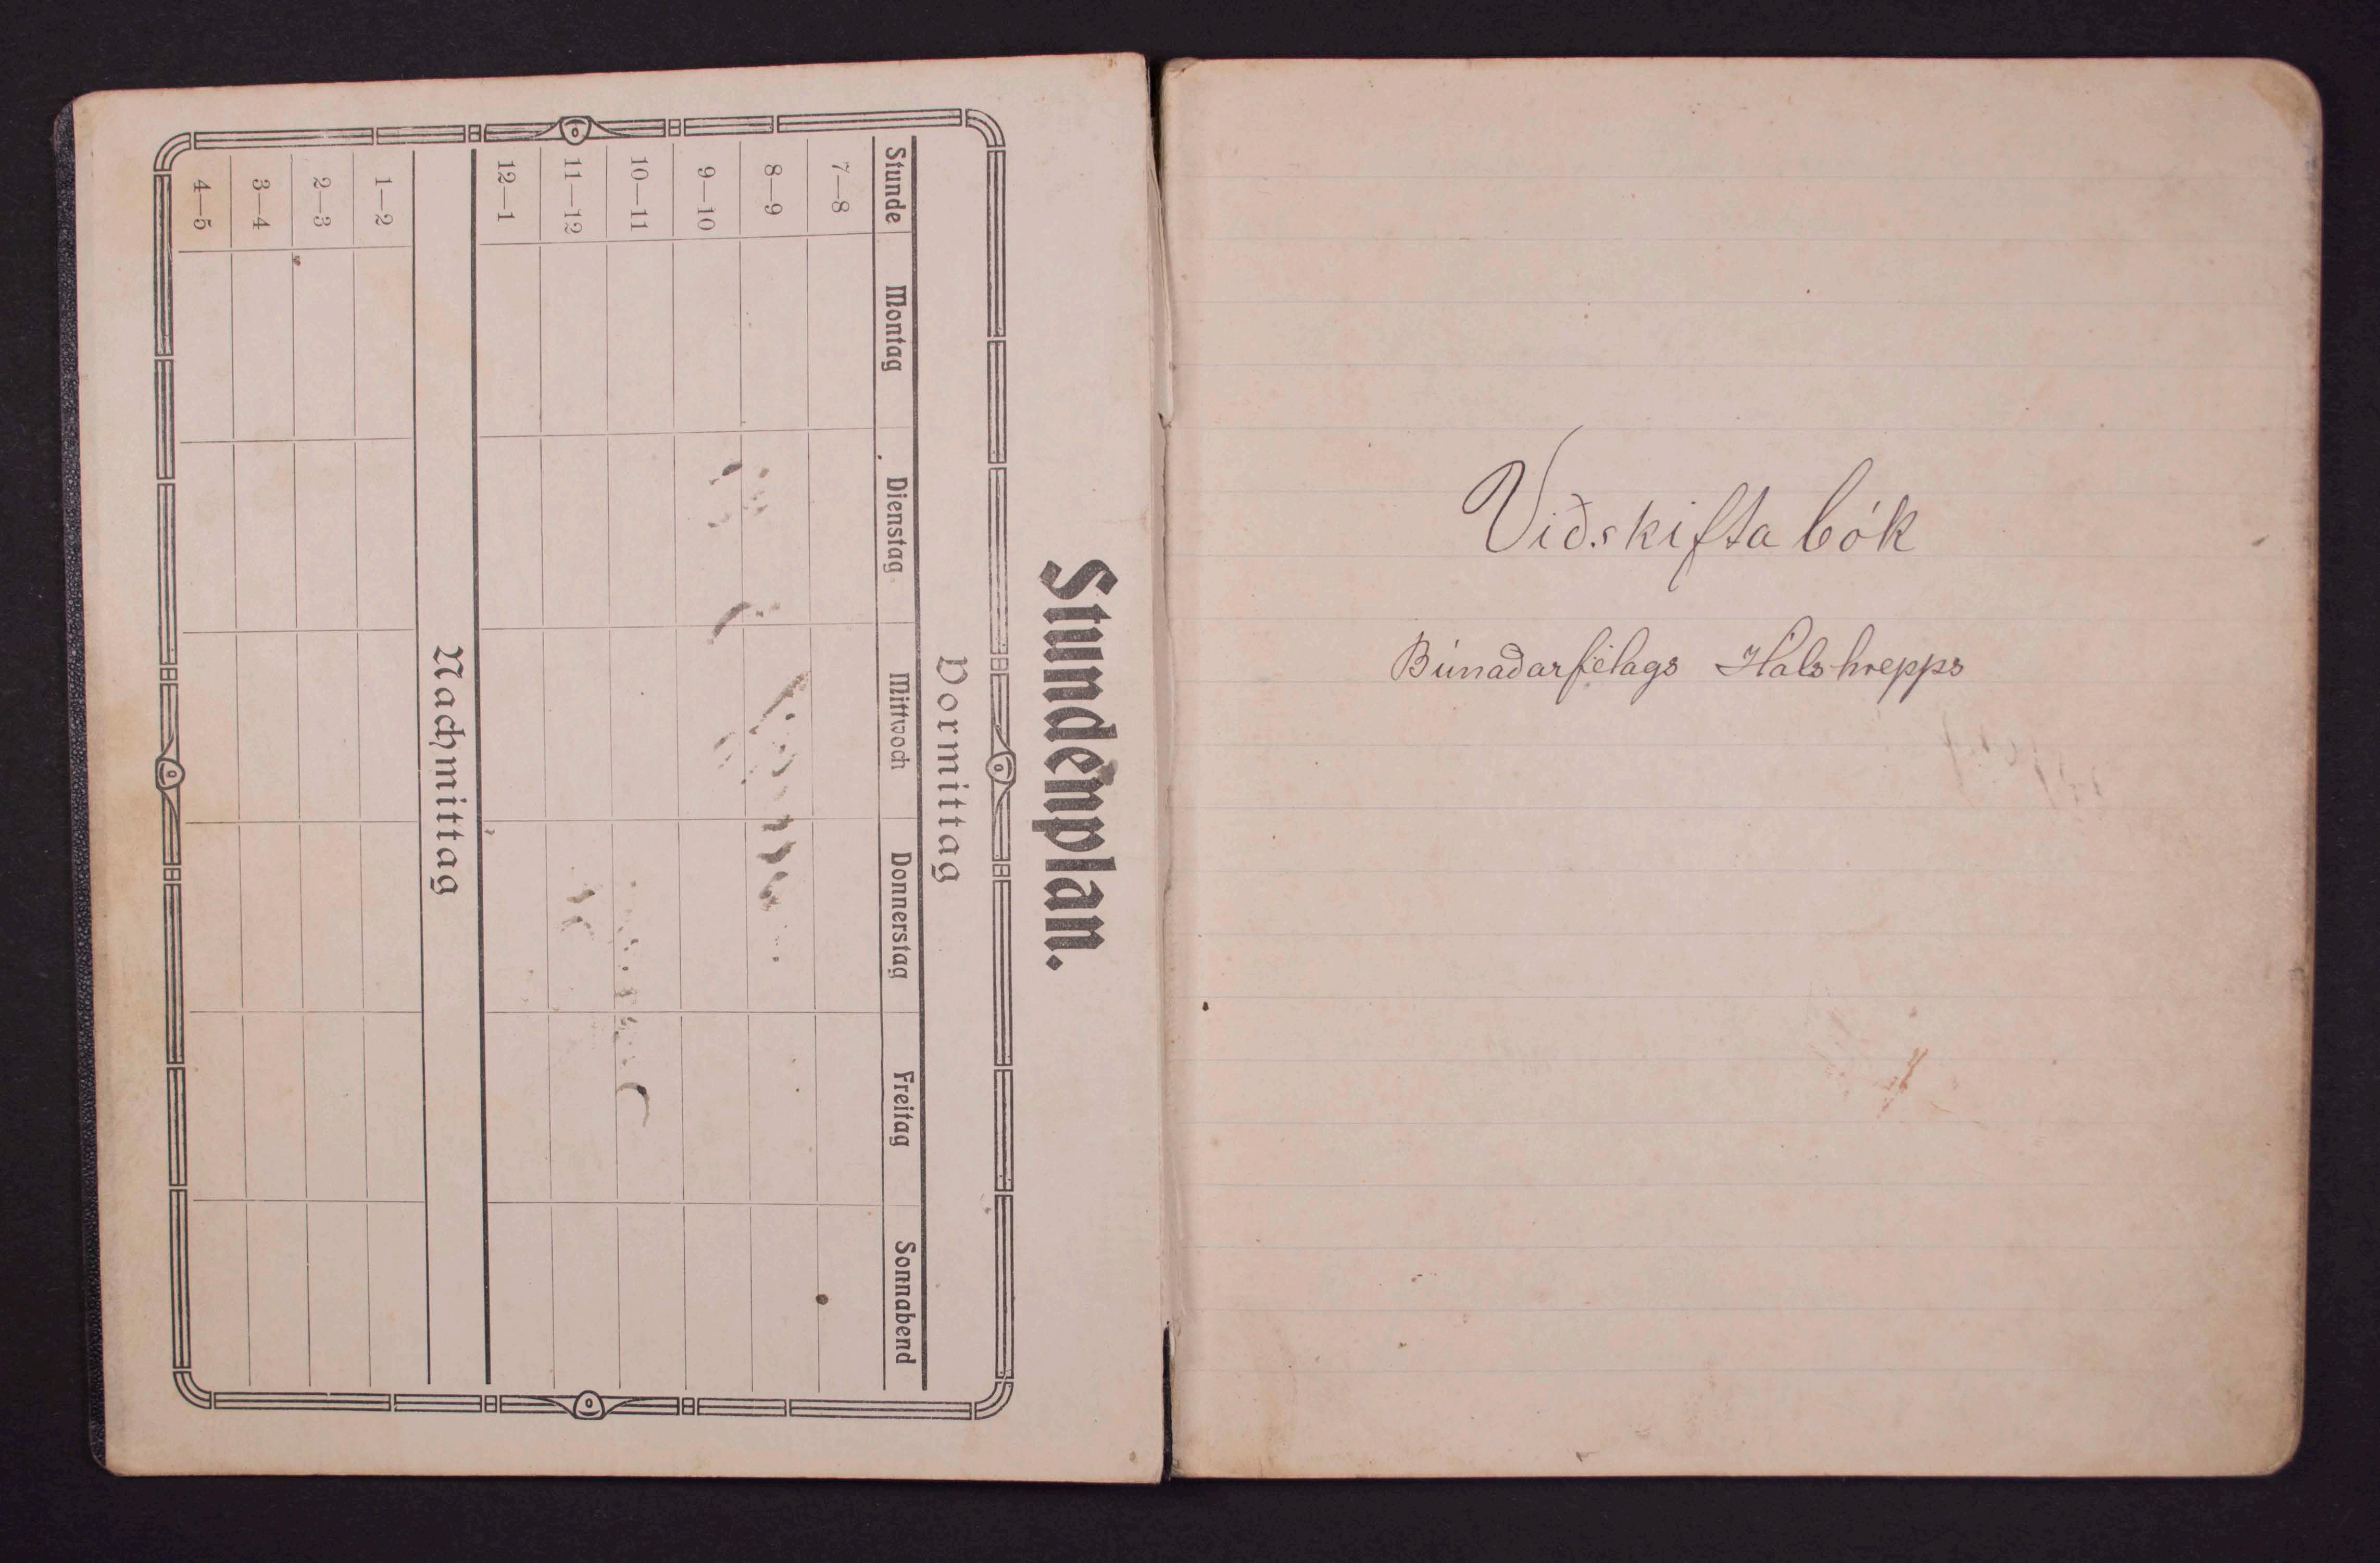 Stundenplan.
Vormittag
Stunde Montag Dienstag Mittwoch Donnerstag Freitag Sonnabend
7—8
8—9
9—10
10—11
11—12
12—1
Nachmittag
1—2
2—3
3—4
4—5
Viðskifta bók
Búnaðarfélags Hálshrepps